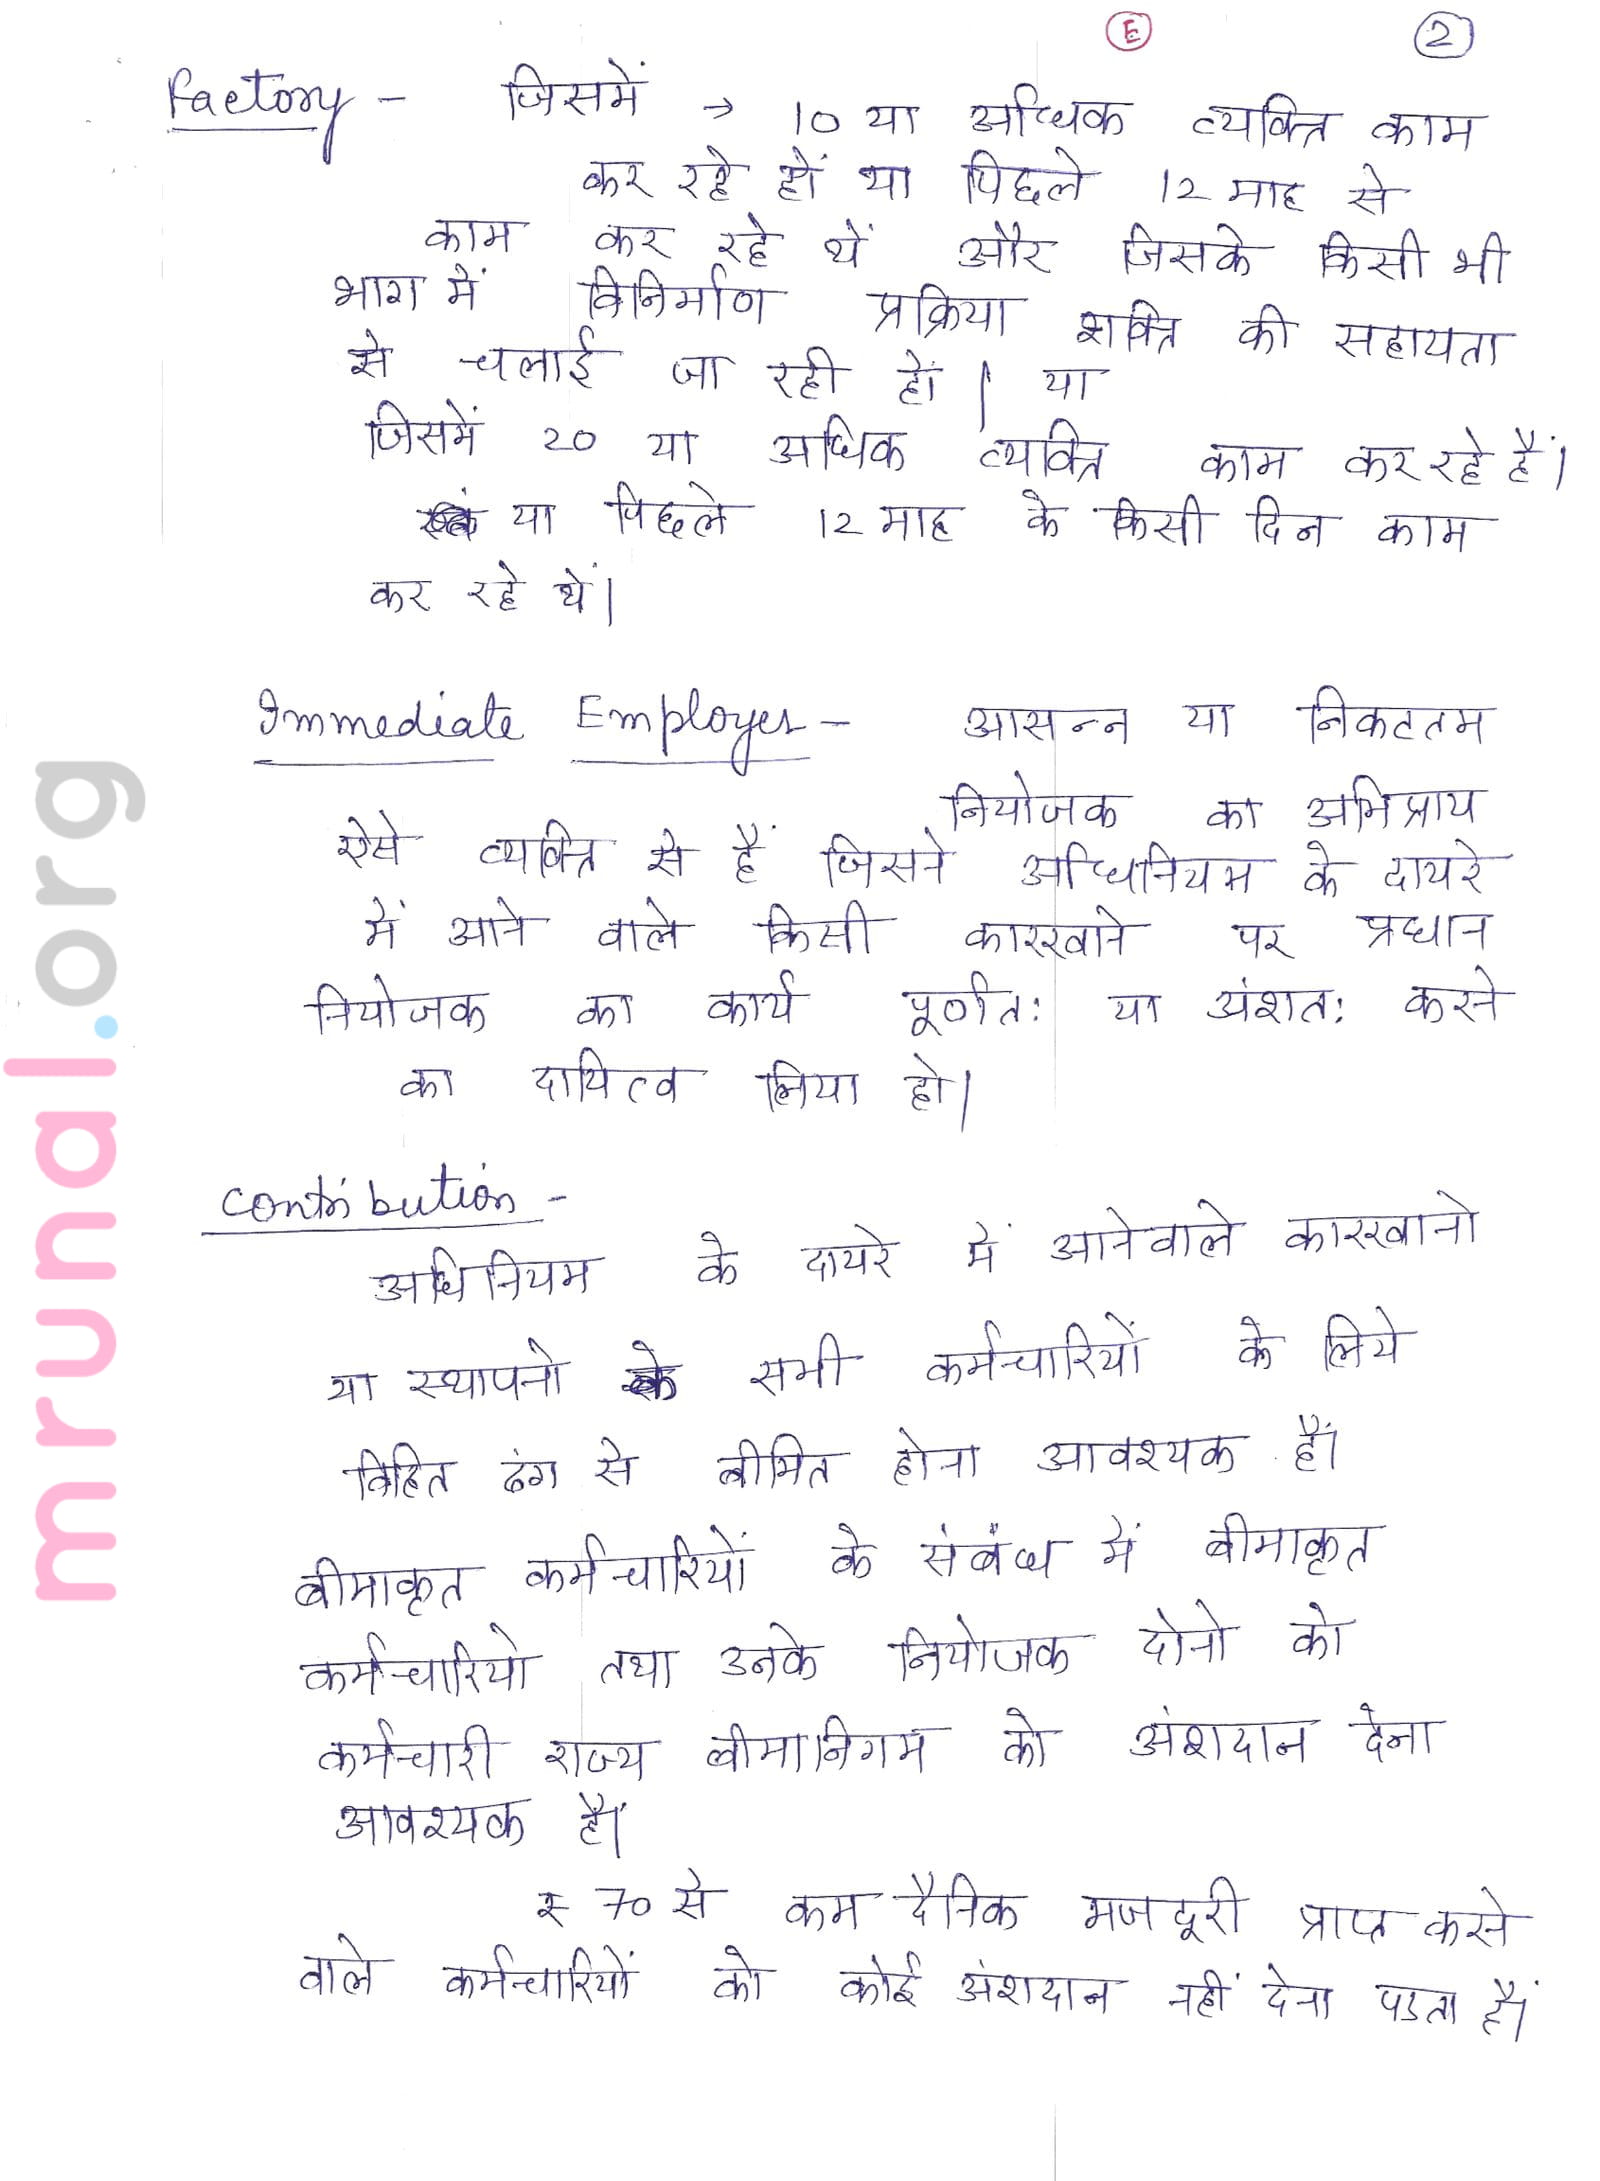 E 2
Factory - जिसमें → 10 या अधिक व्यक्ति काम
कर रहे हों या पिछले 12 माह से
काम कर रहे थें और जिसके किसी भी
भाग में विनिर्माण प्रक्रिया शक्ति की सहायता
से चलाई जा रही हों | या
जिसमें 20 या अधिक व्यक्ति काम कर रहे हैं।
या पिछले 12 माह के किसी दिन काम
कर रहे थें।
Immediate Employer - आसन्न या निकटतम
नियोजक का अभिप्राय
ऐसे व्यक्ति से हैं जिसने अधिनियम के दायरे
में आने वाले किसी कारखाने पर प्रधान
नियोजक का कार्य पूर्णतः या अंशतः करने
का दायित्व लिया हो।
Contribution -
अधिनियम के दायरे में आनेवाले कारखानो
या स्थापनो के सभी कर्मचारियों के लिये
विहित ढंग से बीमित होना आवश्यक हैं।
बीमाकृत कर्मचारियों के संबंध में बीमाकृत
कर्मचारियो तथा उनके नियोजक दोनो को
कर्मचारी राज्य बीमा निगम को अंशदान देना
आवश्यक हैं।
₹ 70 से कम दैनिक मजदूरी प्राप्त करने
वाले कर्मचारियों को कोई अंशदान नहीं देना पडता हैं।
mrunal.org